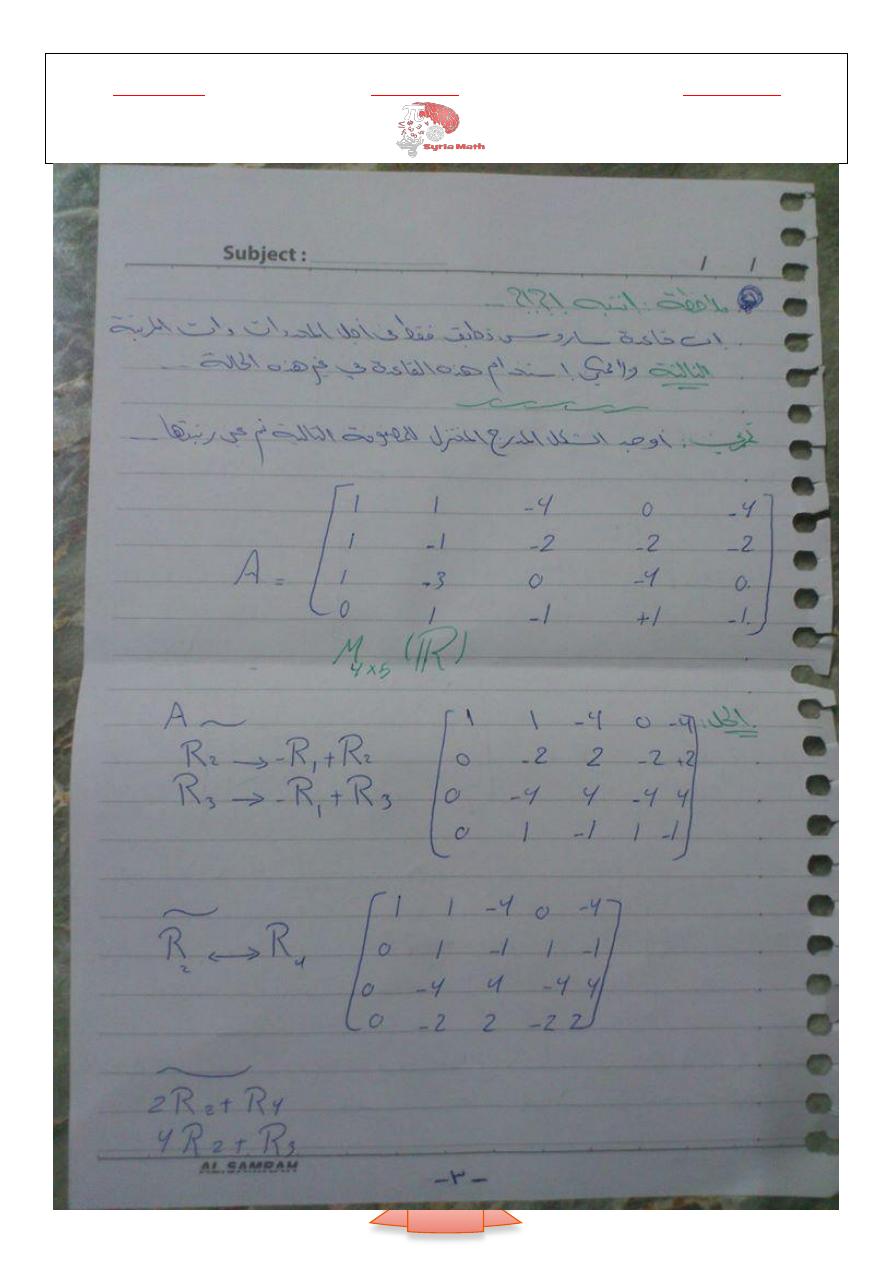 Syria Math
Subject : / /
ملاحظة : انتبه !?!?...
ان قاعدة ساروس تطبق فقط في أجل المحددات ذات المرتبة
الثالثة ولا يمكن استخدام هذه القاعدة في غير هذه الحالة ...
تمرين : أوجد الشكل المدرج المختزل للمصفوفة التالية ثم عين رتبتها ...
1 1 -4 0 -4
1 -1 -2 -2 -2
A = 1 -3 0 -4 0
0 1 -1 +1 -1
M 4×5 (ℝ)
الحل:
A ~ 1 1 -4 0 -4
R2 → -R1 + R2 0 -2 2 -2 +2
R3 → -R1 + R3 0 -4 4 -4 4
0 1 -1 1 -1
~ 1 1 -4 0 -4
R2 ↔ R4 0 1 -1 1 -1
0 -4 4 -4 4
0 -2 2 -2 2
~
2R2 + R4
4R2 + R3
AL.SAMRAH
-٣-